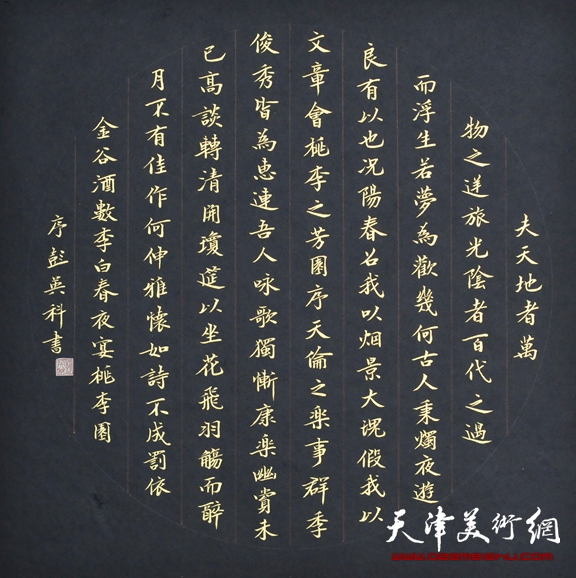 夫天地者萬
物之逆旅光陰者百代之過
而浮生若夢為歡幾何古人秉燭夜遊
良有以也况陽春召我以烟景大塊假我以
文章會桃李之芳園序天倫之樂事群季
俊秀皆為惠連吾人咏歌獨慚康樂幽賞未
已高談轉清開瓊筵以坐花飛羽觴而醉
月不有佳作何伸雅懷如詩不成罰依
金谷酒數李白春夜宴桃李園
序彭英科書
天津美術網